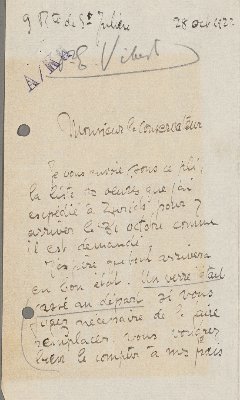 9 Rte de St Julien 28 oct 1922
E. Vibert
Monsieur le Conservateur
Je vous envoie sous ce pli,
la liste 12 oeuvres que j'ai
expédié à Zurich pour y
arriver le 31 octobre comme
il est demandé.
J'espère que tout arrivera
en bon état. Un verre était
cassé au départ si vous
jugez necessaire de le faire
remplacer, vous voudrez
bien le compter à mes frais